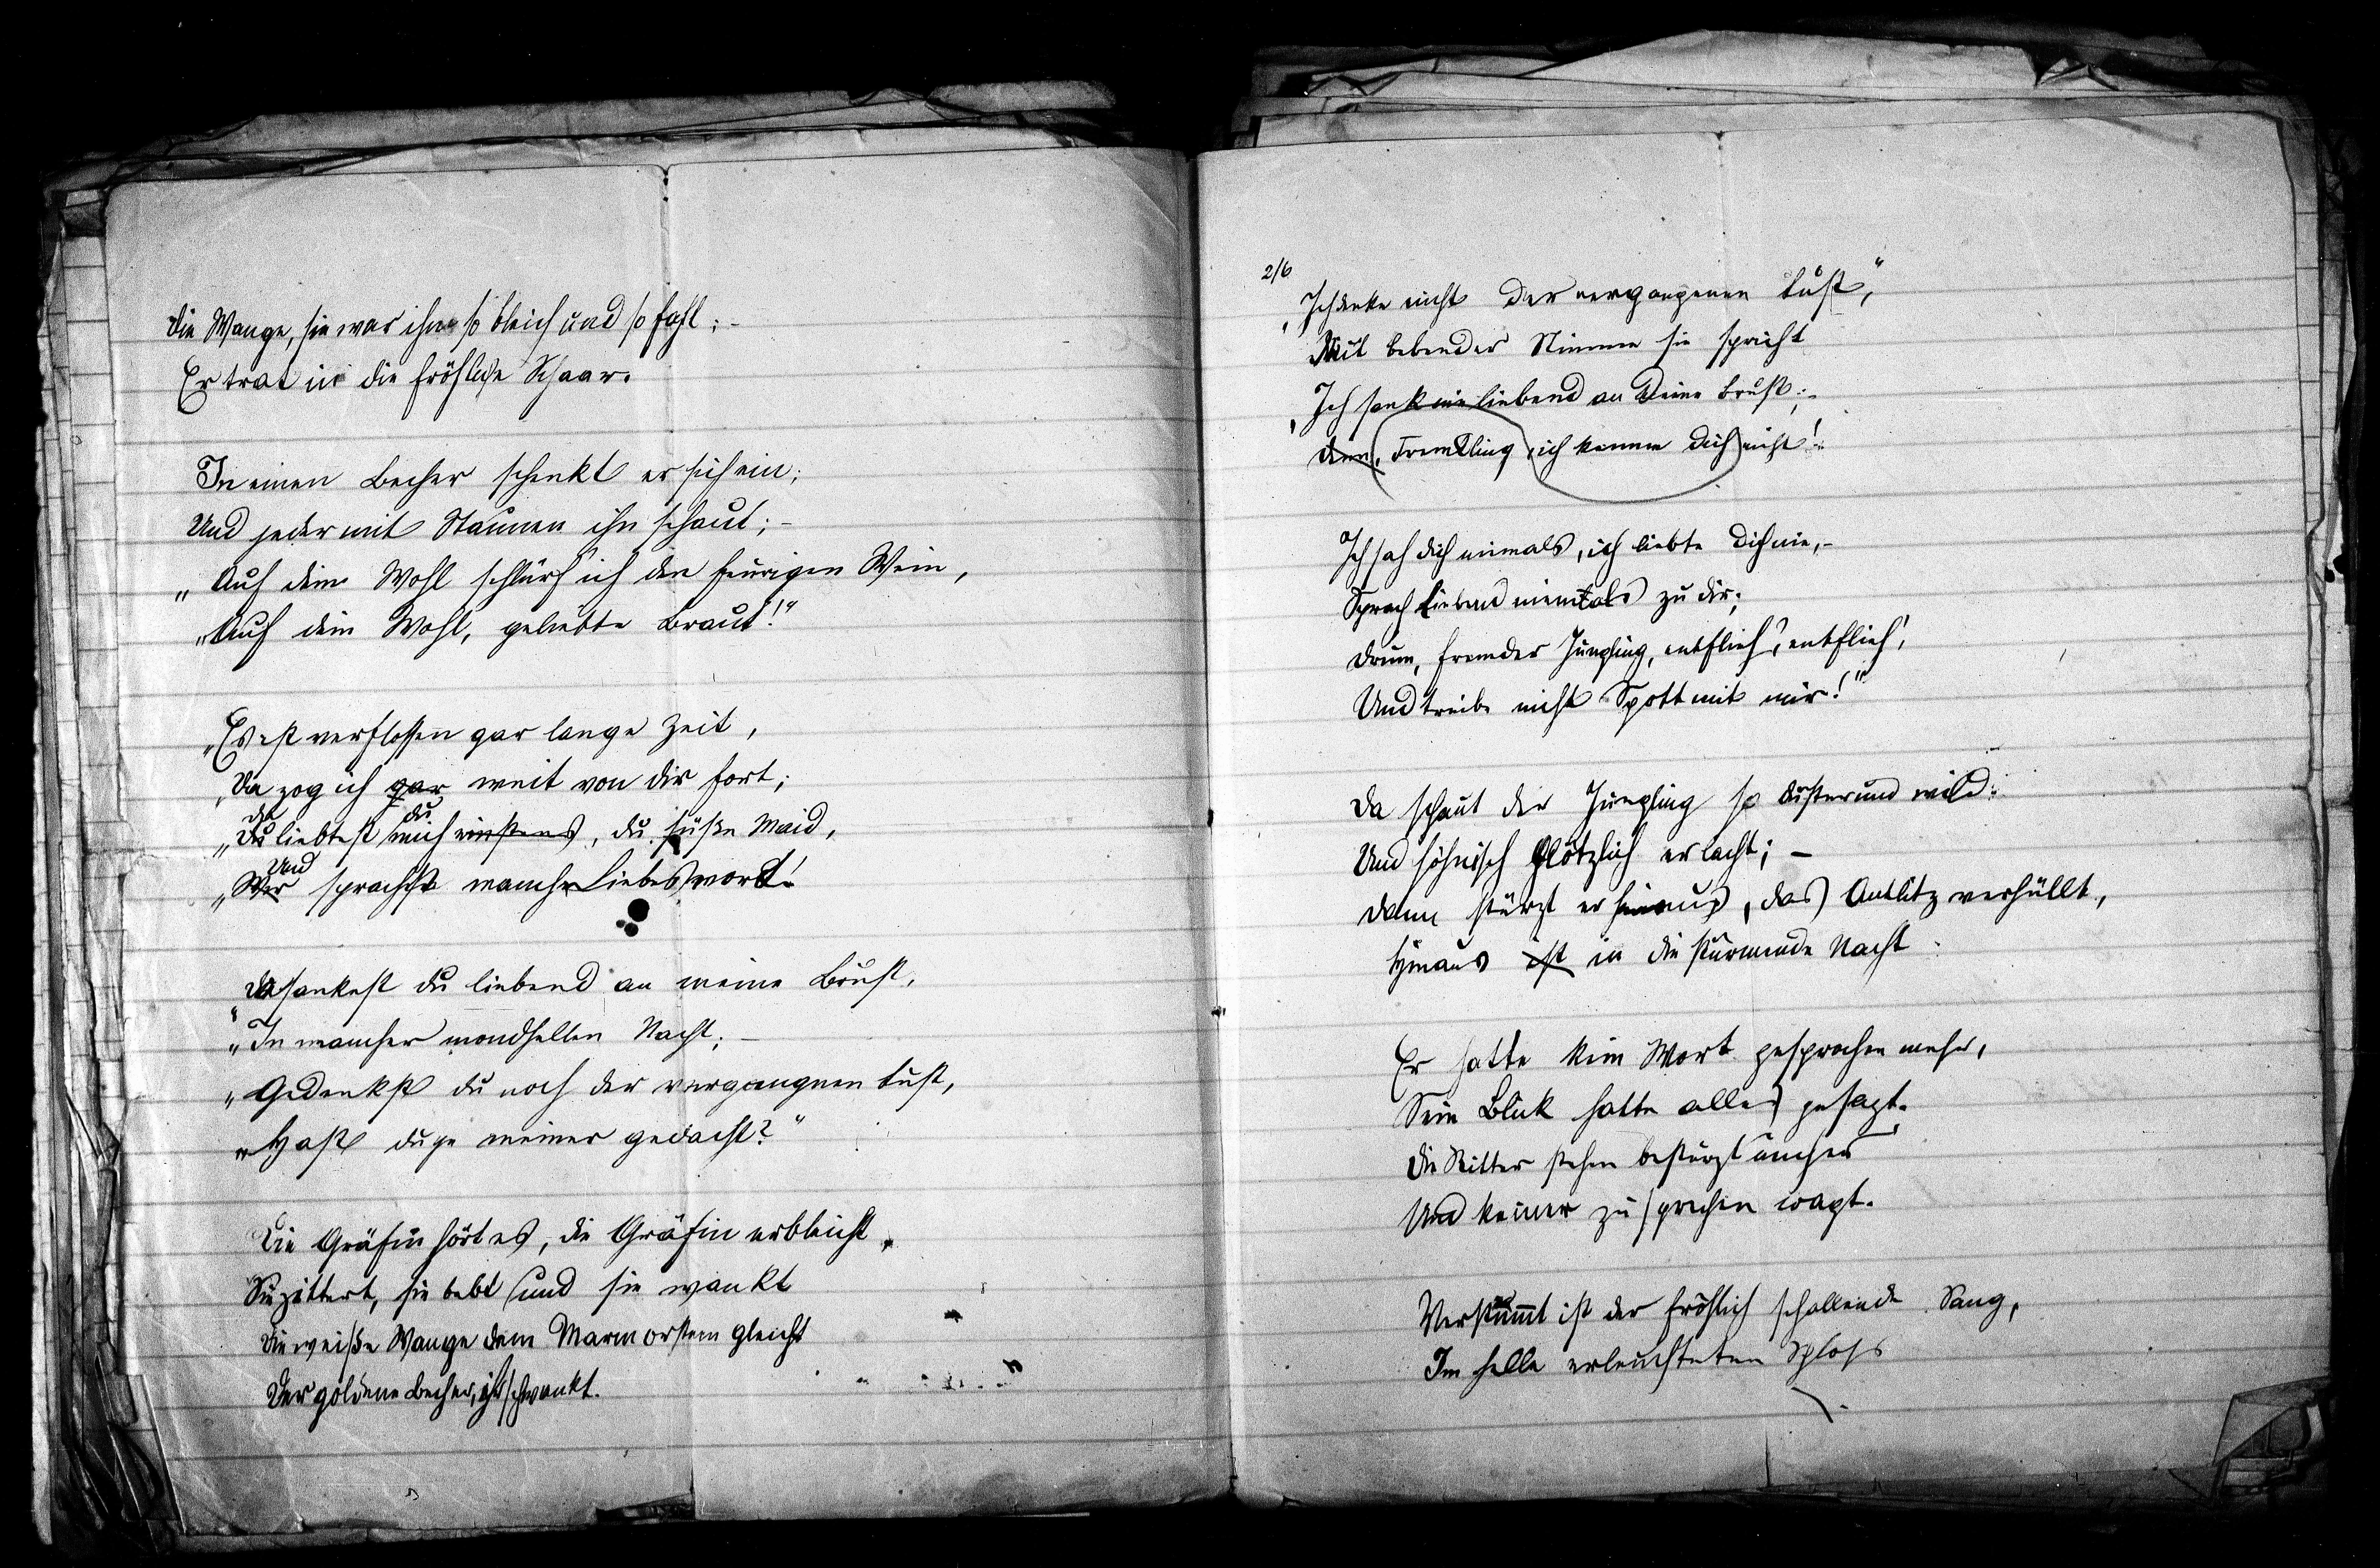 Die Wange, sie war ihm so bleich und so fahl; -
Er trat in die fröhliche Schaar.
In einen Becher schenkt er sich ein;
Und jeder mit Staunen ihn schaut; -
„Auf dein Wohl schlürf ich den feurigen Wein,
„Auf dein Wohl, geliebte Braut!"
„Es ist verflossen gar lange Zeit,
„Da zog ich gar weit von dir fort;
da du
„Du liebtest mich einstens, du süße Maid,
Und
„Wer sprachst manches Liebeswort!
„Da sankest du liebend an meine Brust,
„In mancher mondhellen Nacht; -
„Gedenkst du noch der vergangnen Lust,
„Hast du je meiner gedacht?"
Die Gräfin hört es, die Gräfin erbleicht,
Sie zittert, sie bebt und sie wankt
Die weiße Wange dem Marmorstein gleicht
Der goldene Becher, er schwankt.
2/6
„Ich denke nicht der vergangenen Lust,"
Mit bebender Stimme sie spricht
„Ich sank nie liebend an Deine Brust; -
Denn, Fremdling, ich kenne Dich nicht!
Ich sah dich niemals, ich liebte Dich nie, -
Sprach liebend niemals zu dir;
Drum, fremder Jüngling, entflieh', entflieh',
Und treibe nicht Spott mit mir!"
Da schaut der Jüngling so düster und wild:
Und höhnisch plötzlich er lacht; -
Dann stürzt er hinaus, das Antlitz verhüllt,
Hinaus ist in die stürmende Nacht.
Er hatte kein Wort gesprochen mehr,
Sein Blick hatte alles gesagt.
Die Ritter stehen bestürzt umher
Und keiner zu sprechen wagt.
Verstummt ist der fröhlich schallende Sang,
Im helle erleuchteten Schloss